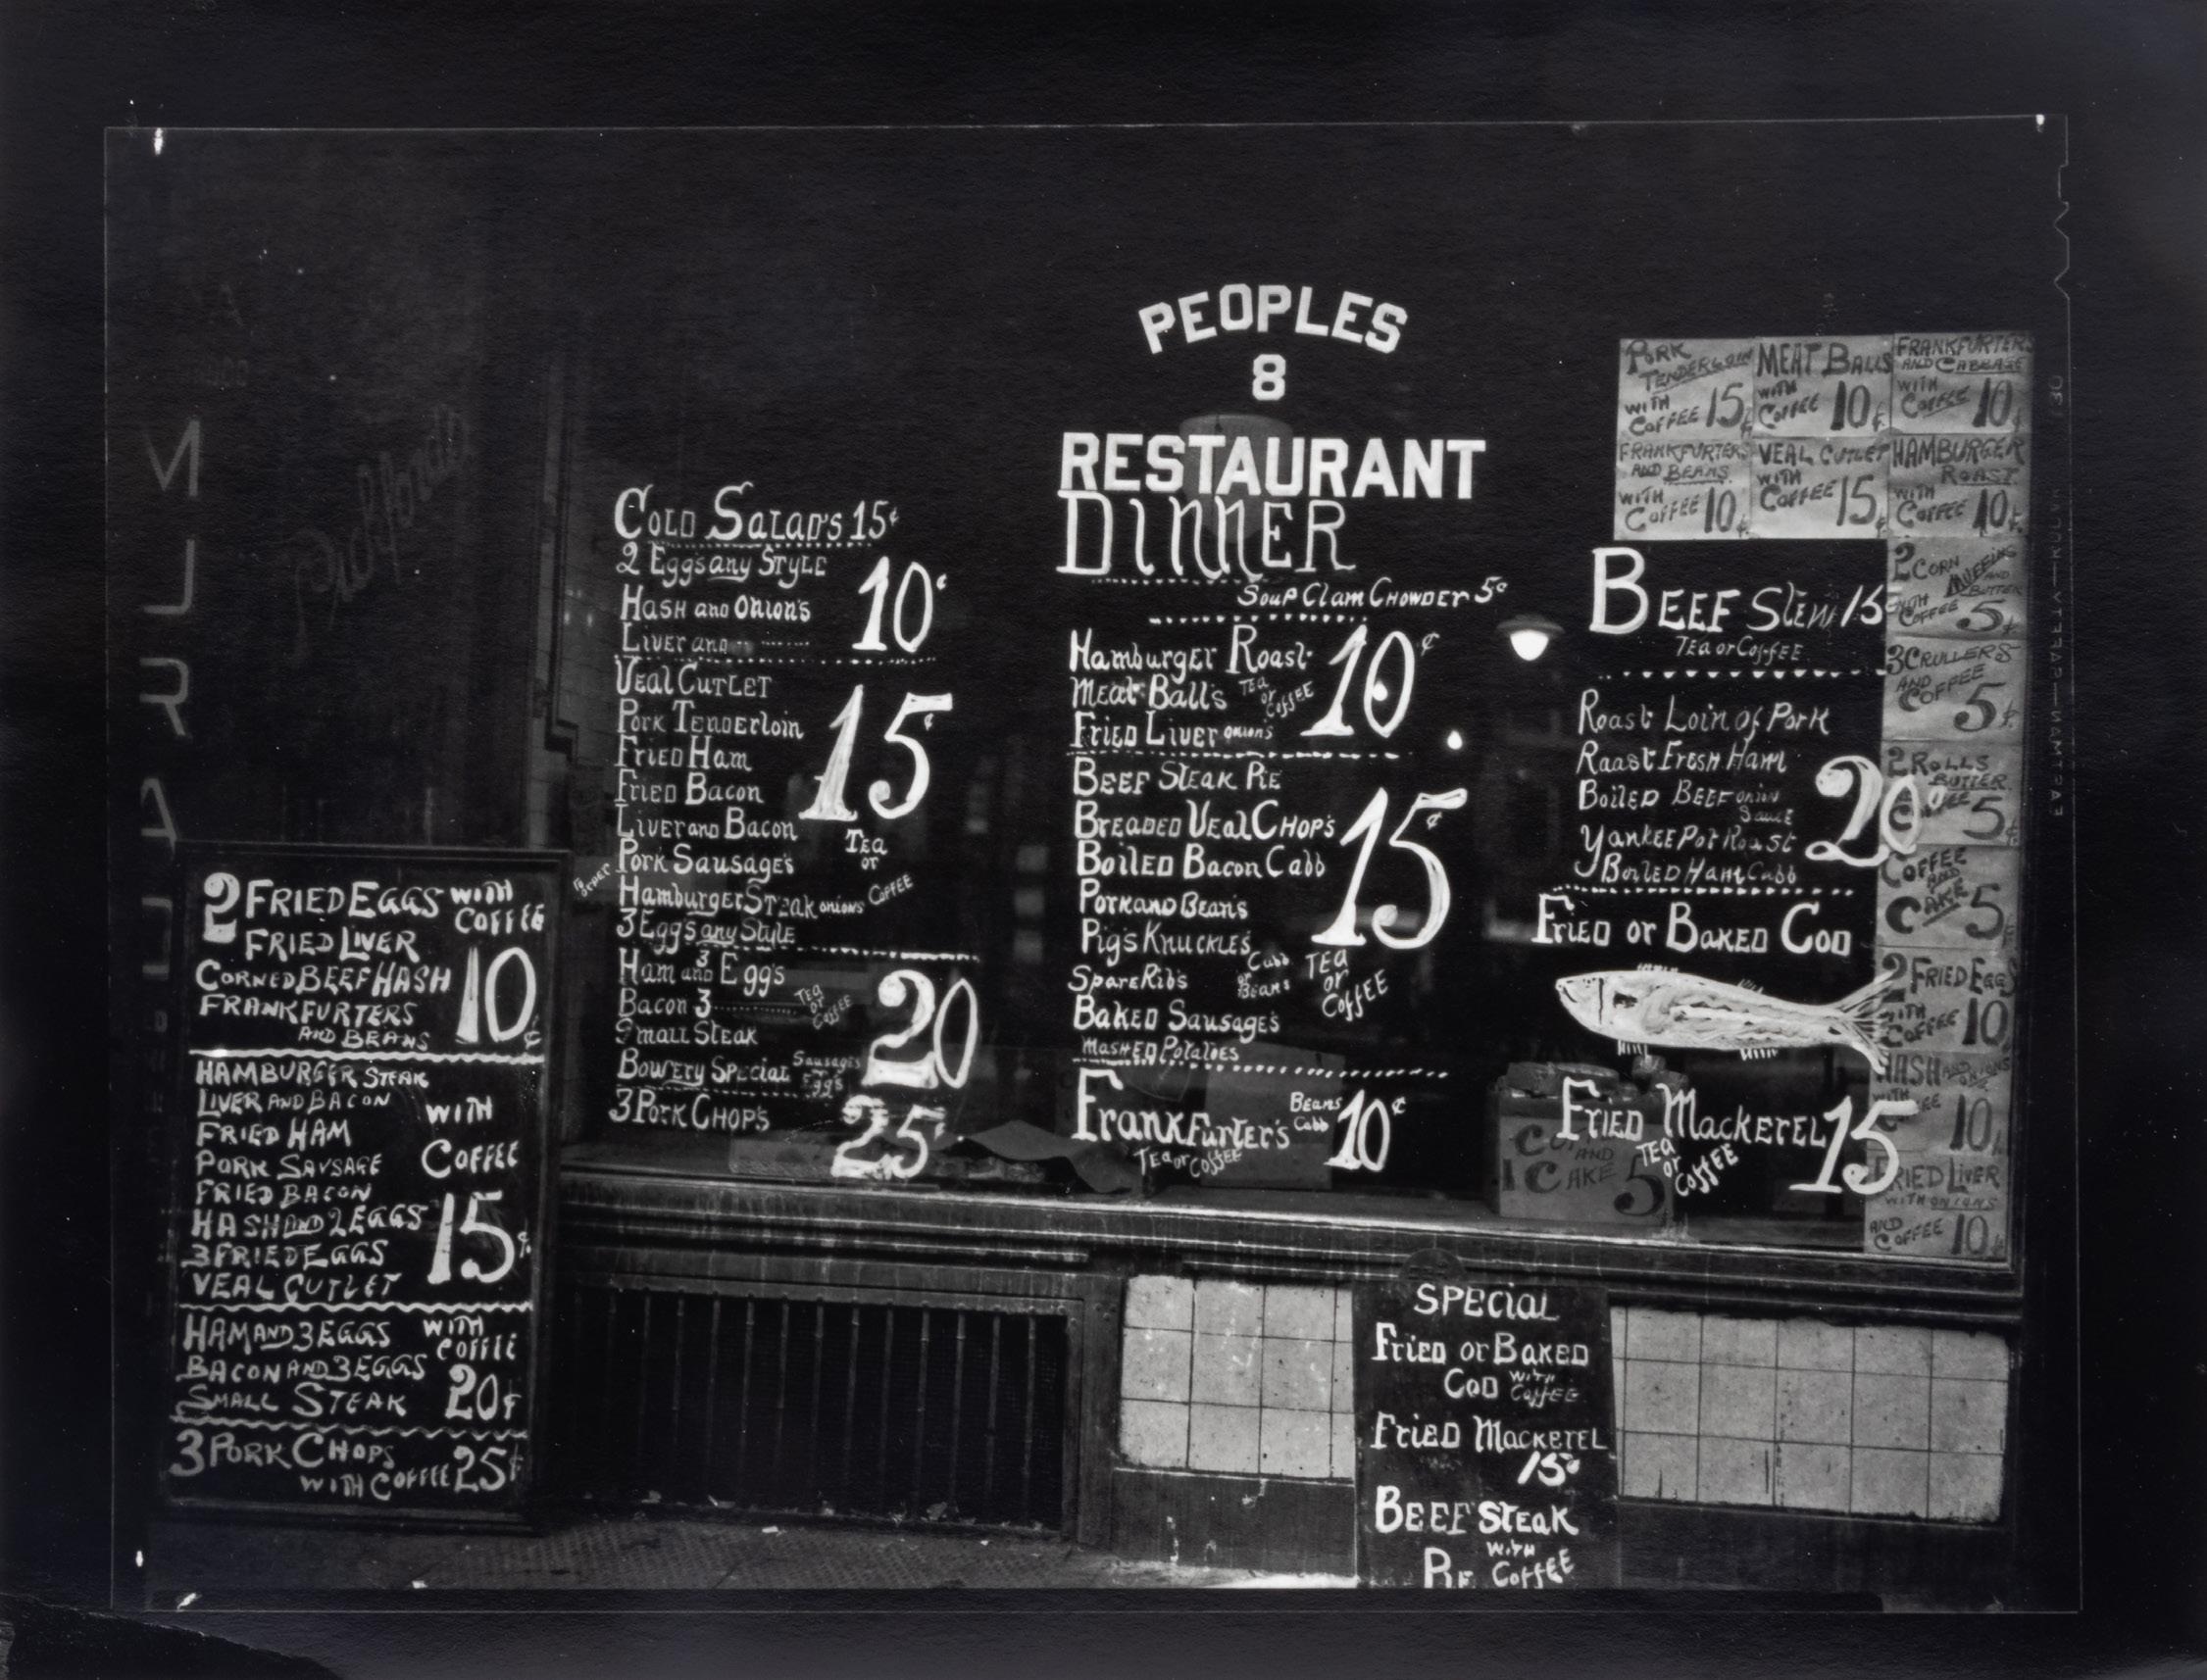 PEOPLES
8
RESTAURANT
DINNER
Soup Clam Chowder 5¢
Hamburger Roast
Meat Ball's Tea or Coffee
Fried Liver onions
10¢
Beef Steak Pie
Breaded Veal Chop's
Boiled Bacon Cabb
Pork and Bean's
Pig's Knuckles
Spare Rib's
Cabb or Beans
Baked Sausage's
Mashed Potatoes
15¢
Tea or Coffee
Frankfurter's Beans Cabb 10¢
Tea or Coffee
Cold Salad's 15¢
2 Eggs any Style
Hash and Onion's
Liver and
10¢
Veal Cutlet
Pork Tenderloin
Fried Ham
Fried Bacon
Liver and Bacon
Pork Sausage's
Hamburger Steak onions
3 Egg's any Style
15¢
Tea or Coffee
Ham and 3 Egg's
Bacon 3
Tea or Coffee
Small Steak
Bowery Special Sausages Egg's
20
3 Pork Chop's
25¢
2 FRIED EGGS WITH COFFEE
FRIED LIVER
CORNED BEEF HASH
FRANKFURTERS
AND BEANS
10¢
HAMBURGER STEAK
LIVER AND BACON
FRIED HAM
PORK SAUSAGE
FRIED BACON
HASH AND 2 EGGS
3 FRIED EGGS
VEAL CUTLET
WITH
COFFEE
15¢
HAM AND 3 EGGS
BACON AND 3 EGGS
SMALL STEAK
WITH COFFEE
20¢
3 PORK CHOPS
WITH COFFEE 25¢
Beef Stew 15
Tea or Coffee
Roast Loin of Pork
Raast Fresh Ham
Boiled Beef onion Sauce
Yankee Pot Roast
Boiled Ham Cabb
20¢
Fried or Baked Cod
Fried Mackerel 15
Tea or Coffee
PORK TENDERLOIN
WITH COFFEE 15¢
MEAT BALLS
WITH COFFEE 10¢
FRANKFURTERS
AND CABBAGE
WITH COFFEE 10¢
FRANKFURTERS
AND BEANS
WITH COFFEE 10¢
VEAL CUTLET
WITH COFFEE 15¢
HAMBURGER
ROAST
WITH COFFEE 10¢
2 CORN
MUFFINS
AND BUTTER
WITH COFFEE 5¢
3 CRULLERS
AND COFFEE
5¢
2 ROLLS
BUTTER
5¢
COFFEE
AND
CAKE 5
2 FRIED EGGS
WITH COFFEE 10
HASH AND ONIONS
10¢
FRIED LIVER
WITH ONIONS
AND COFFEE 10¢
AND
CAKE 5
SPECIAL
Fried or Baked
Cod with Coffee
Fried Mackerel
15¢
Beef Steak
Pie with Coffee